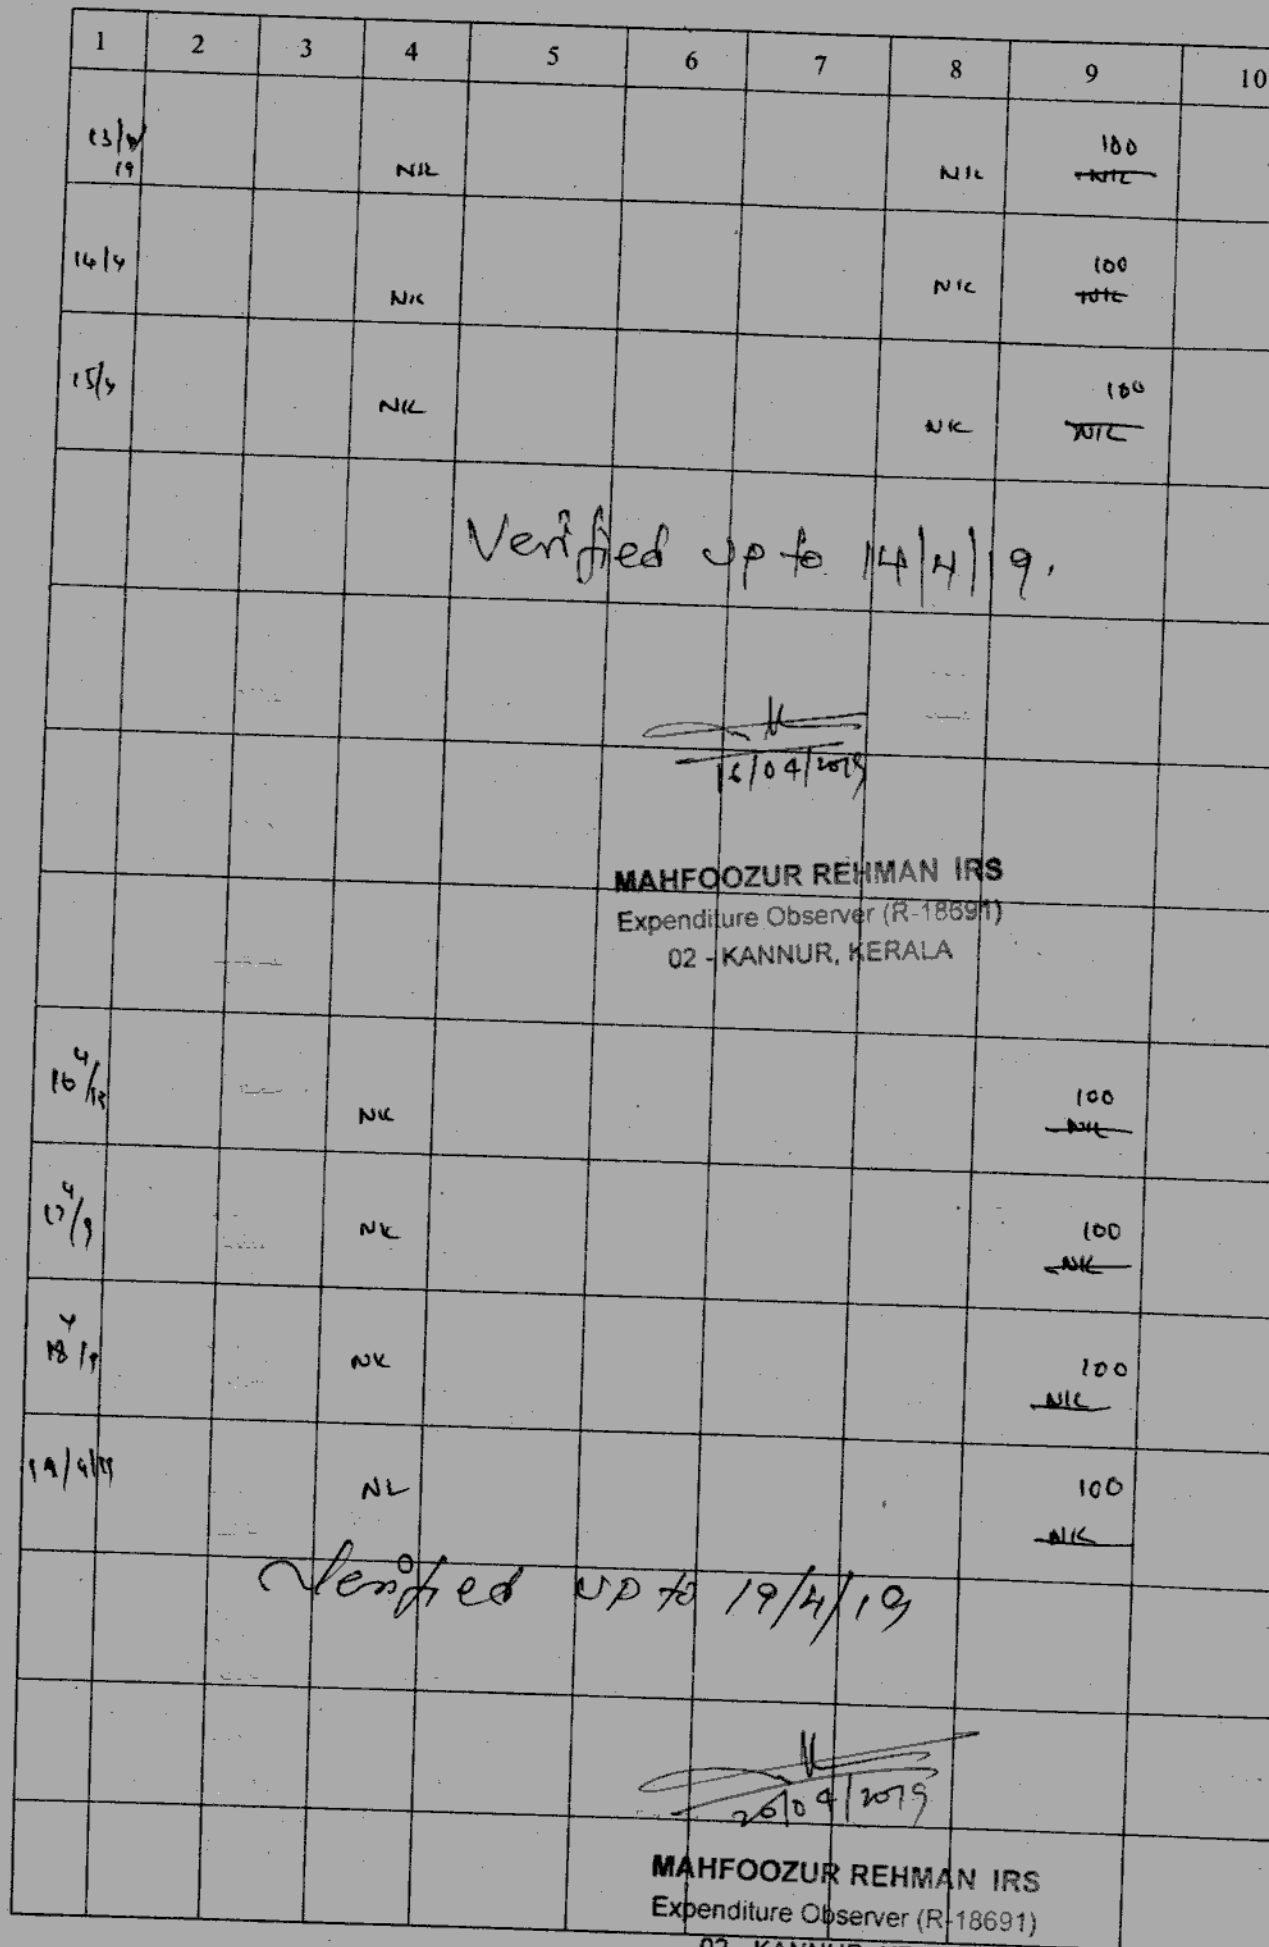 1 2 3 4 5 6 7 8 9 10
13/4/19 NIL NIL 100 NIL
14/4 NIL NIL 100 NIL
15/4 NIL NIL 100 NIL
Verified up to 14/4/19.
16/04/2019
MAHFOOZUR REHMAN IRS
Expenditure Observer (R-18691)
02 - KANNUR, KERALA
16/4/19 NIL 100 NIL
17/4/9 NIL 100 NIL
18/4/9 NIL 100 NIL
19/4/19 NIL 100 NIL
Verified up to 19/4/19
20/04/2019
MAHFOOZUR REHMAN IRS
Expenditure Observer (R-18691)